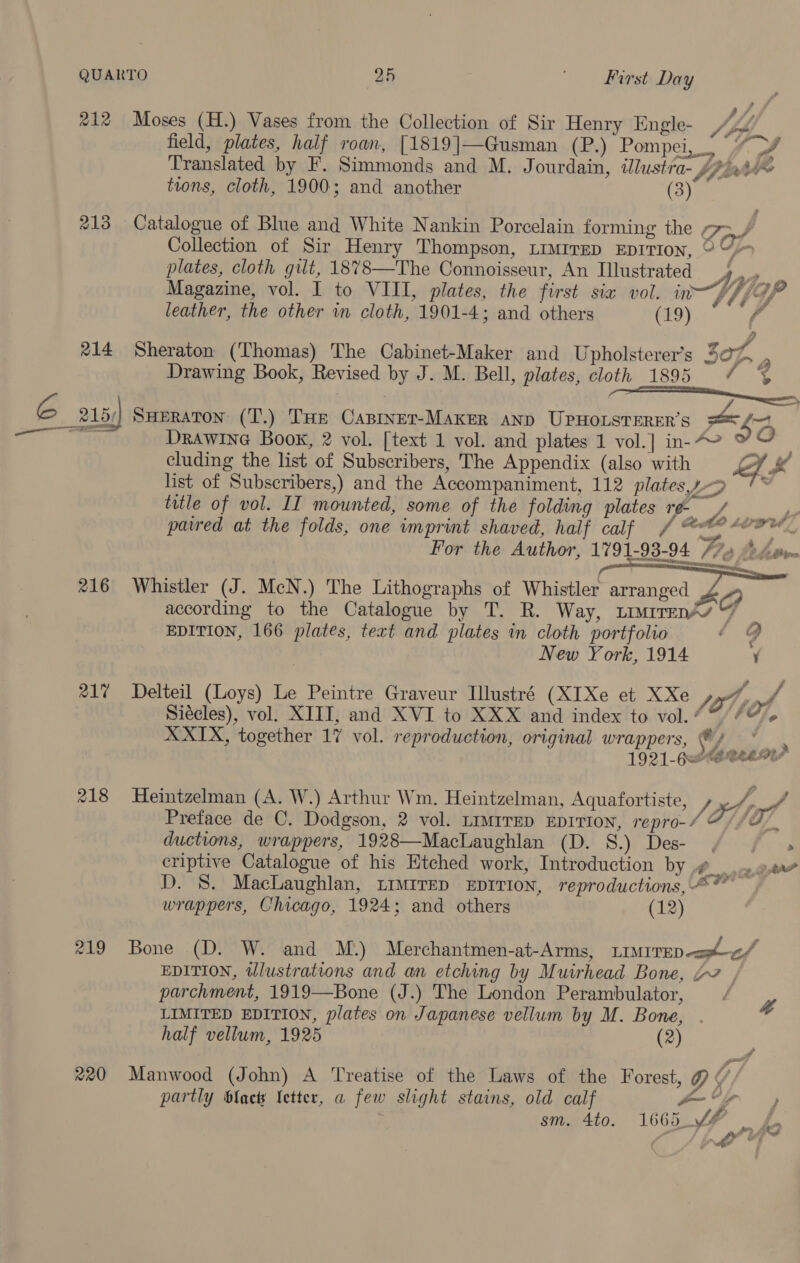 QUARTO 25 First Day
212 Moses (H.) Vases from the Collection of Sir Henry Engle-
field, plates, half roan, [1819]—Gusman (P.) Pompei,
Translated by F. Simmonds and M. Jourdain, illustra-
tions, cloth, 1900; and another (3)
213 Catalogue of Blue and White Nankin Porcelain forming the
Collection of Sir Henry Thompson, LIMITED EDITION,
plates, cloth gilt, 1878—The Connoisseur, An Illustrated
Magazine, vol. I to VIII, plates, the first six vol. in
leather, the other in cloth, 1901-4; and others (19)
214 Sheraton (Thomas) The Cabinet-Maker and Upholsterer's
Drawing Book, Revised by J. M. Bell, plates, cloth 1895
215 SHERATON (T.) THE CABINET-MAKER AND UPHOLSTERER'S
DRAWING BOOK, 2 vol. [text 1 vol. and plates 1 vol.] in-
cluding the list of Subscribers, The Appendix (also with
list of Subscribers,) and the Accompaniment, 112 plates,
title of vol. II mounted, some of the folding plates re-
paired at the folds, one imprint shaved, half calf
For the Author, 1791-93-94
216 Whistler (J. McN.) The Lithographs of Whistler arranged
according to the Catalogue by T. R. Way, LIMITED
EDITION, 166 plates, text and plates in cloth portfolio
New York, 1914
217 Delteil (Loys) Le Peintre Graveur Illustré (XIXe et XXe
Siècles), vol. XIII, and XVI to XXX and index to vol.
XXIX, together 17 vol. reproduction, original wrappers,
1921-6
218 Heintzelman (A. W.) Arthur Wm. Heintzelman, Aquafortiste,
Preface de C. Dodgson, 2 vol. LIMITED EDITION, repro-
ductions, wrappers, 1928—MacLaughlan (D. S.) Des-
criptive Catalogue of his Etched work, Introduction by
D. S. MacLaughlan, LIMITED EDITION, reproductions,
wrappers, Chicago, 1924; and others (12)
219 Bone (D. W. and M.) Merchantmen-at-Arms, LIMITED
EDITION, illustrations and an etching by Muirhead Bone,
parchment, 1919—Bone (J.) The London Perambulator,
LIMITED EDITION, plates on Japanese vellum by M. Bone,
half vellum, 1925 (2)
220 Manwood (John) A Treatise of the Laws of the Forest,
partly black letter, a few slight stains, old calf
sm. 4to. 1665